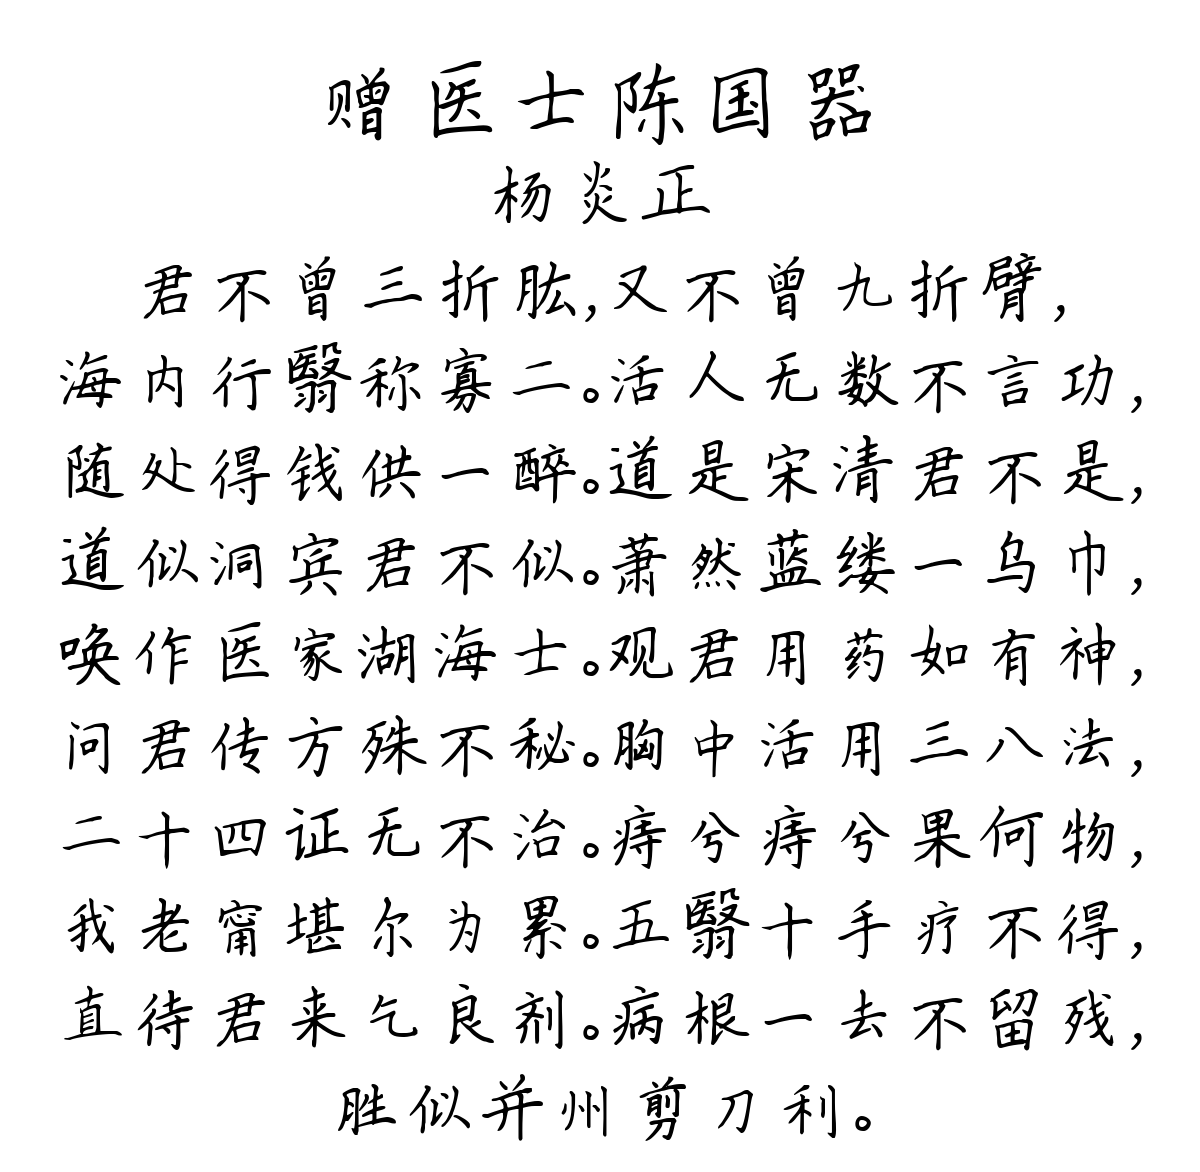 赠医士陈国器
杨炎正
君不曾三折肱,又不曾九折臂,
海内行翳称寡二。活人无数不言功,
随处得钱供一醉。道是宋清君不是,
道似洞宾君不似。萧然蓝缕一乌巾,
唤作医家湖海士。观君用药如有神,
问君传方殊不秘。胸中活用三八法,
二十四证无不治。痔兮痔兮果何物,
我老甯堪尔为累。五翳十手疗不得,
直待君来乞良剂。病根一去不留残,
胜似并州剪刀利。